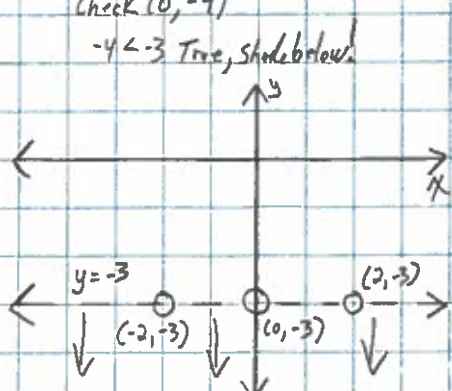 Check (0, -4)
-4 < -3 True, Shade below!
y
x
y = -3
(2, -3)
(-2, -3)
(0, -3)